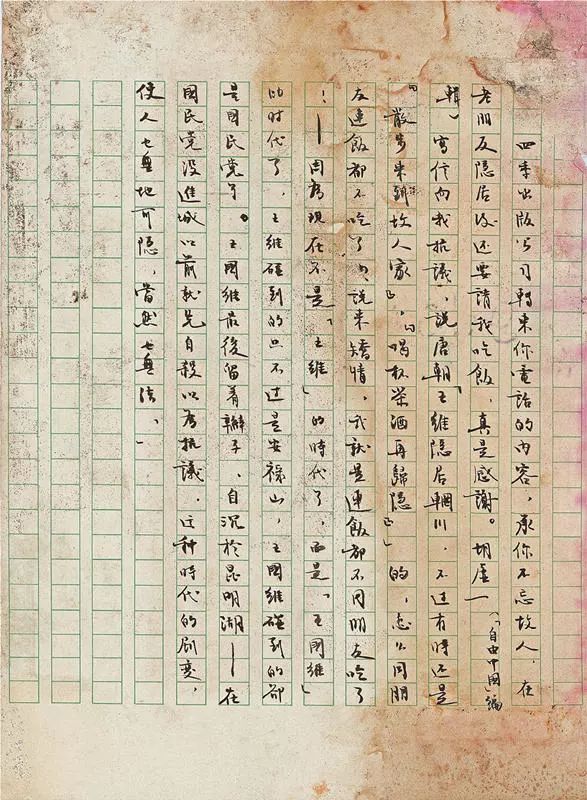 四季出版公司轉來你電話的內容，承你不忘故人，在
老朋友隱居後還要請我吃飯，真是感謝。胡虛一（「自由中國」編
輯）寫信向我抗議，說唐朝「王維隱居輞川，不過有時還是
『散步来到故人家』，『喝杯茶酒再歸隱』」的，怎么同朋
友連飯都不吃了，說来矯情，我就是連飯都不同朋友吃了
！—因為現在不是「王維」的時代了，而是「王國維」
的時代了，王維碰到的只不过是安祿山，王國維碰到的卻
是國民党了。王國維最後留着辮子、自沉於昆明湖—在
國民党没進城以前就先自殺以為抗議，这种時代的劇变，
使人也無地可隱，當然也無法、、